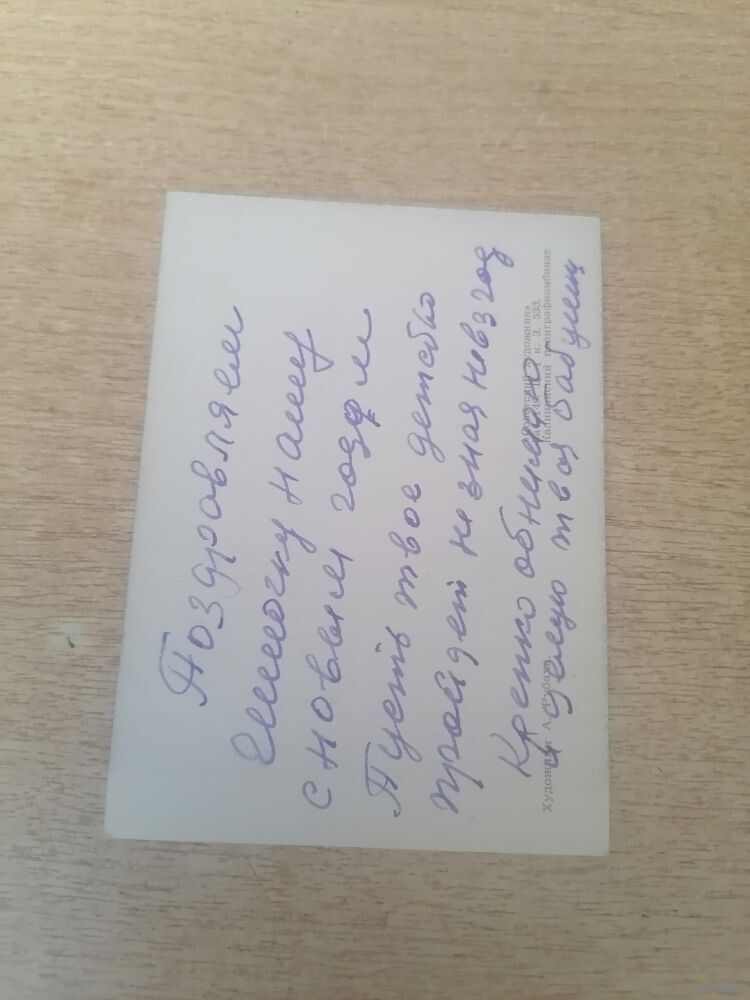 Поздравляем
нашу
с новым годом
Пусть твое детство
пройдет не зная невзгод
Крепко обнимаю
и целую твоя бабушка
Художник А. Рыбак.
«Советский художник»
З. 533.
Калининский полиграфкомбинат